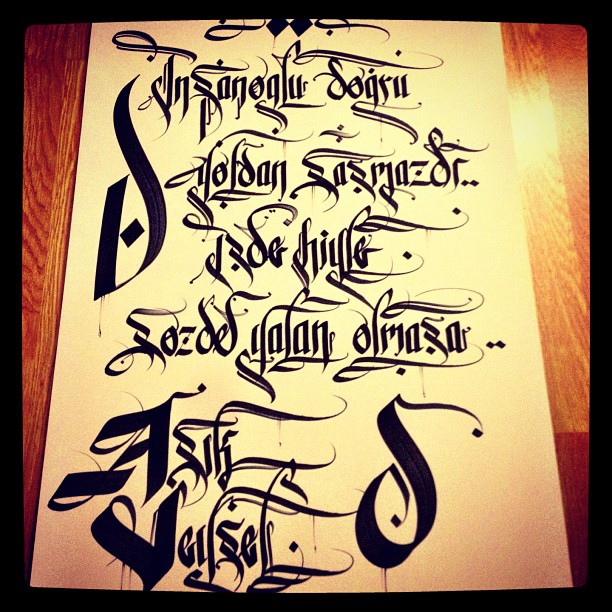 İnsanoğlu doğru
yoldan şaşmazdı..
işde hiyle
sözde yalan olmasa..
Aşık
Veysel.